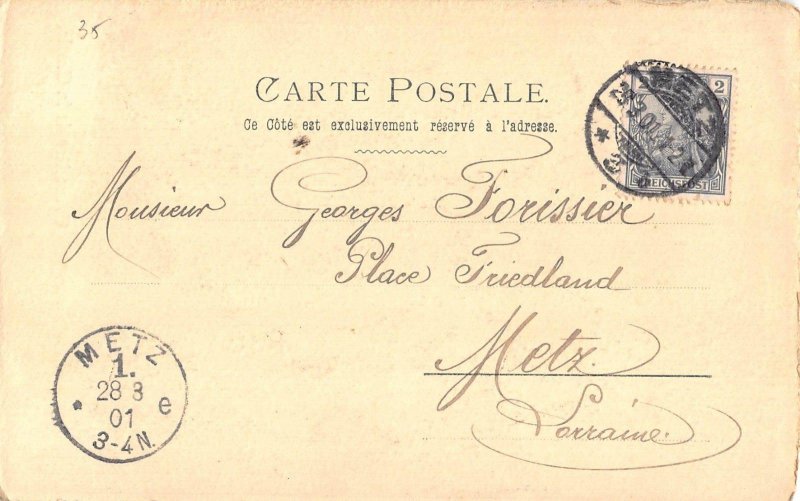 35
2
CARTE POSTALE.
METZ
Ce Côté est exclusivement réservé à l'adresse.
REICHSPOST
Monsieur Georges Forissier
Place Friedland
METZ
1.
28 8
01
e
3-4N.
Metz.
Lorraine.